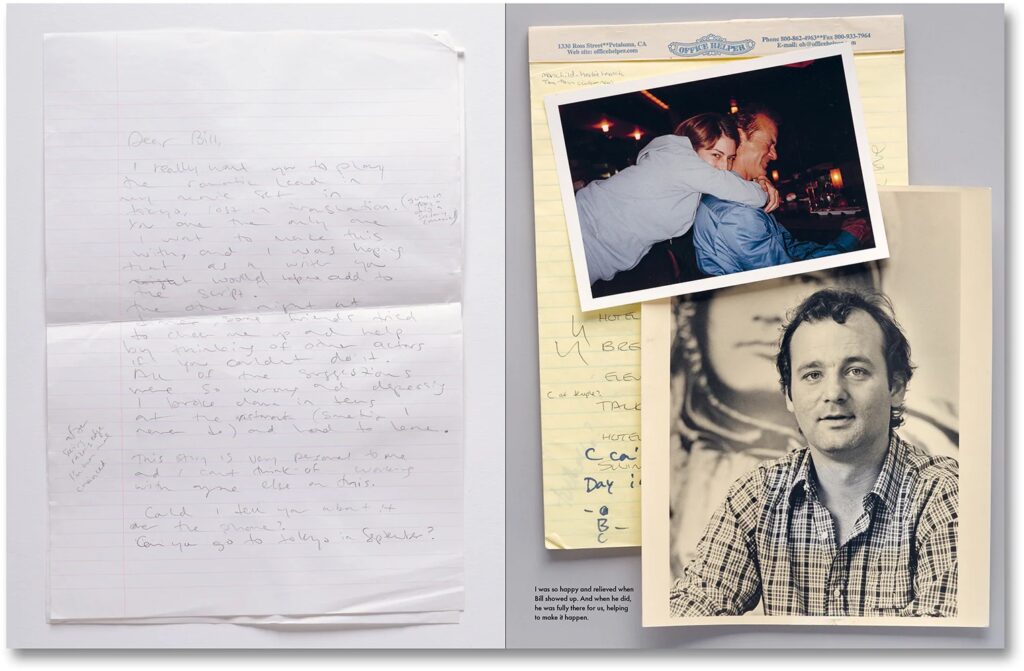 Dear Bill,
I really want you to play
the romantic lead in
my movie set in
tokyo, lost in translation.
You are the only one
I want to make this
with, and I was hoping
that as a writer you
would add to
the script.
The other night at
some friends tried
to cheer me up and help
by thinking of other actors
if you couldn't do it.
All of the suggestions
were so wrong and depressing
I broke down in tears
at the (something I
never do) and had to leave.
This story is very personal to me
and I can't think of working
with anyone else on this.
Could I tell you about it
over the phone?
Can you go to tokyo in September?
1330 Ross Street**Petaluma, CA
Web site: officehelper.com
OFFICE HELPER
Phone 800-862-4963**Fax 800-933-7964
E-mail: oh@officehelper
HOTEL
BRE
ELEV
TALK
HOTEL
C ca
Day i
B
C
I was so happy and relieved when
Bill showed up. And when he did,
he was fully there for us, helping
to make it happen.